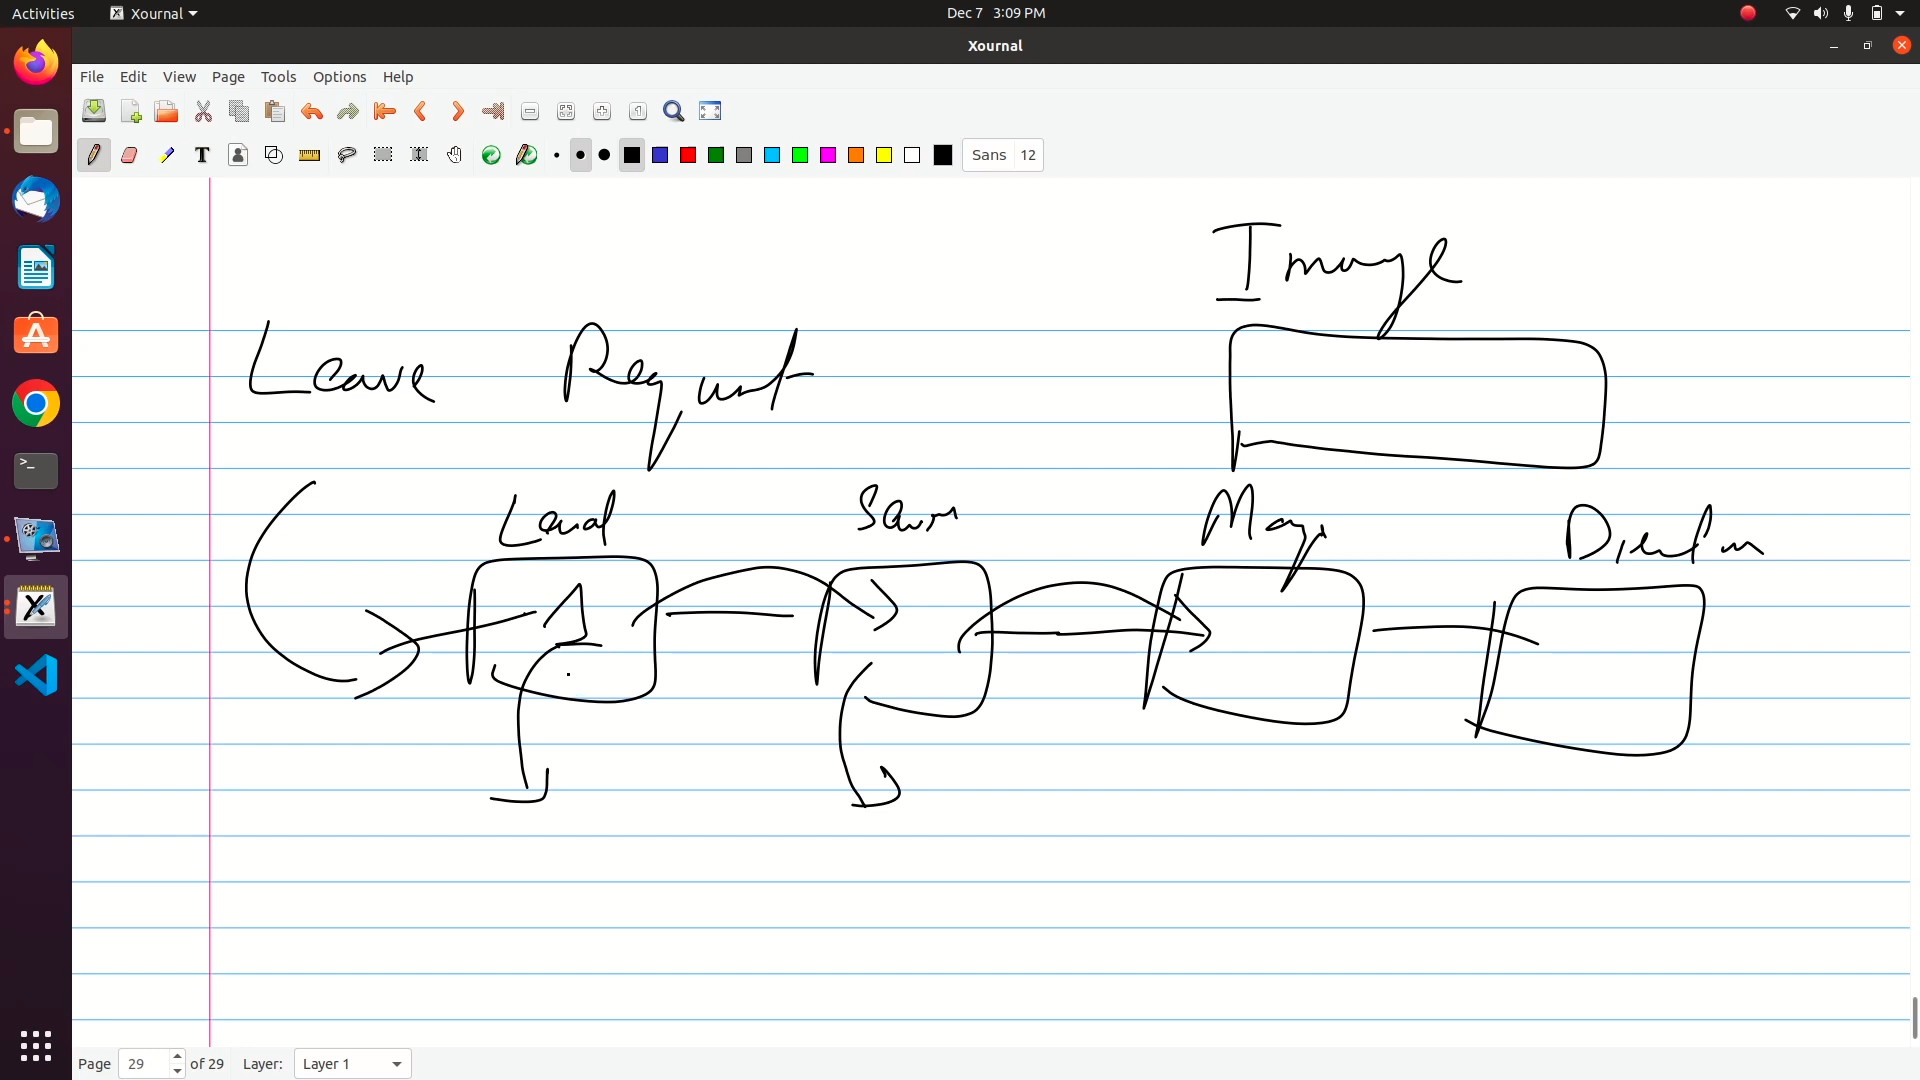 Activities Xournal Dec 7 3:09 PM
Xournal
File Edit View Page Tools Options Help
T Sans 12
Image
Leave Request
Lead
Page 29 of 29 Layer: Layer 1